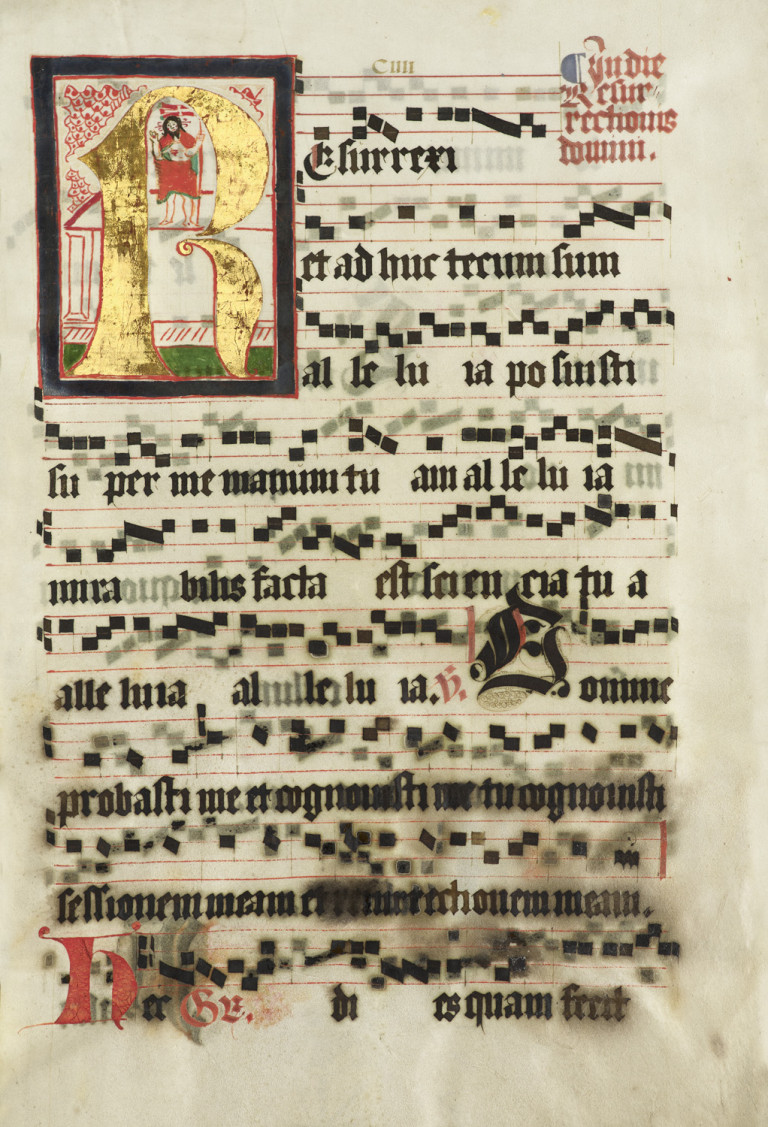 Ciiii
In die
Resur-
rectionis
domini.
REsurrexi
et ad huc tecum sum
al le lu ia po suisti
su per me manum tu am al le lu ia
mira bilis facta est scien cia tu a
alle luia al le lu ia. Domine
probasti me et cognouisti me tu cognouisti
sessionem meam et resurrectionem meam.
Hec Gr. di es quam fecit